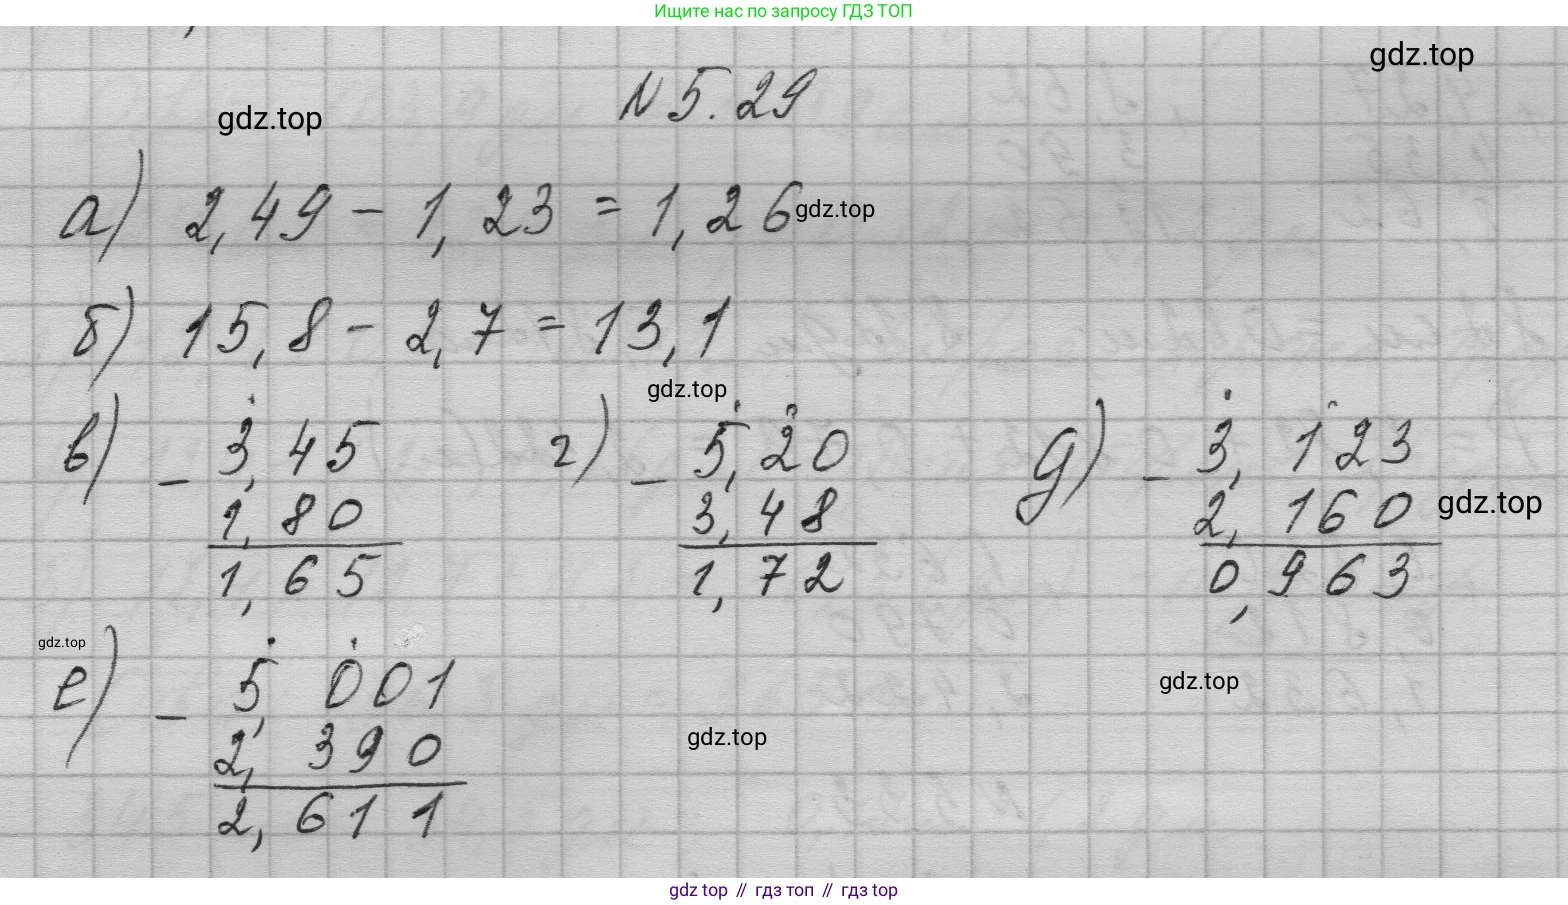 Ищите нас по запросу ГДЗ ТОП
gdz.top
N 5.29
gdz.top
а) 2,49 - 1,23 = 1,26
gdz.top
б) 15,8 - 2,7 = 13,1
gdz.top
в) - 3,45
1,80
1,65
г) - 5,20
3,48
1,72
д) - 3,123
2,160
0,963
gdz.top
gdz.top
е) - 5,001
2,390
2,611
gdz.top
gdz.top
gdz top // гдз топ // гдз top